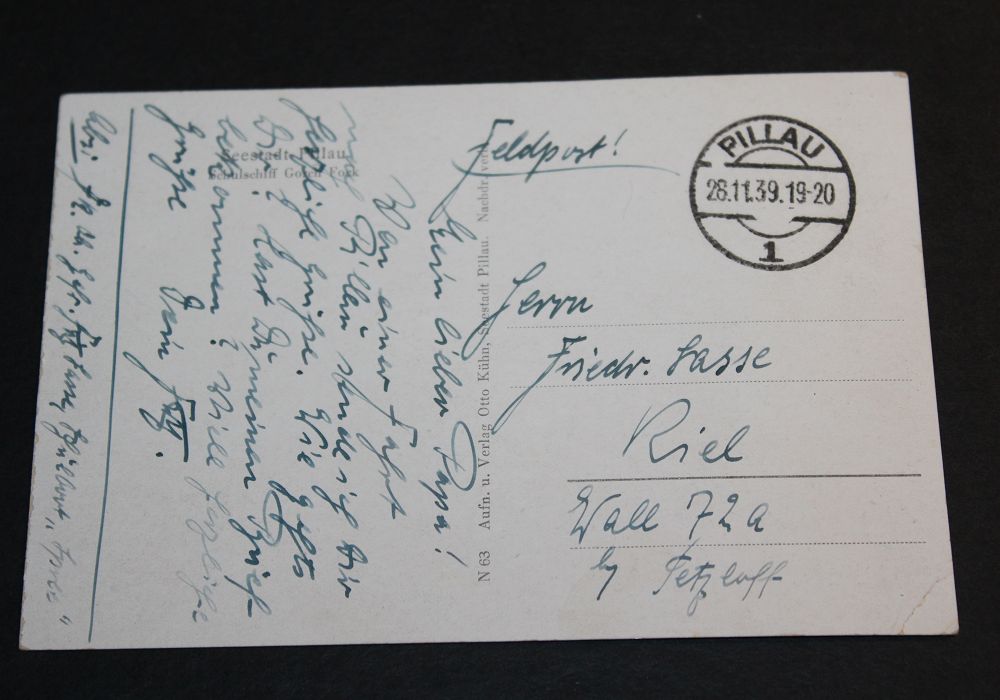 Seestadt Pillau
Schulschiff Gorch Fock
Mein lieber Papa!
Von einer Fahrt
nach Pillau sende ich Dir
herzliche Grüße. Wie gehts
Dir? Hast Du meinen Brief
bekommen? Viele herzliche
Grüße Dein
N 63 Aufn. u. Verlag Otto Kühn, Seestadt Pillau. Nachdr. verb.
Feldpost!
PILLAU
28.11.39.19-20
1
Herrn
Friedr. Lasse
Kiel
Wall 72a
by Petzloff